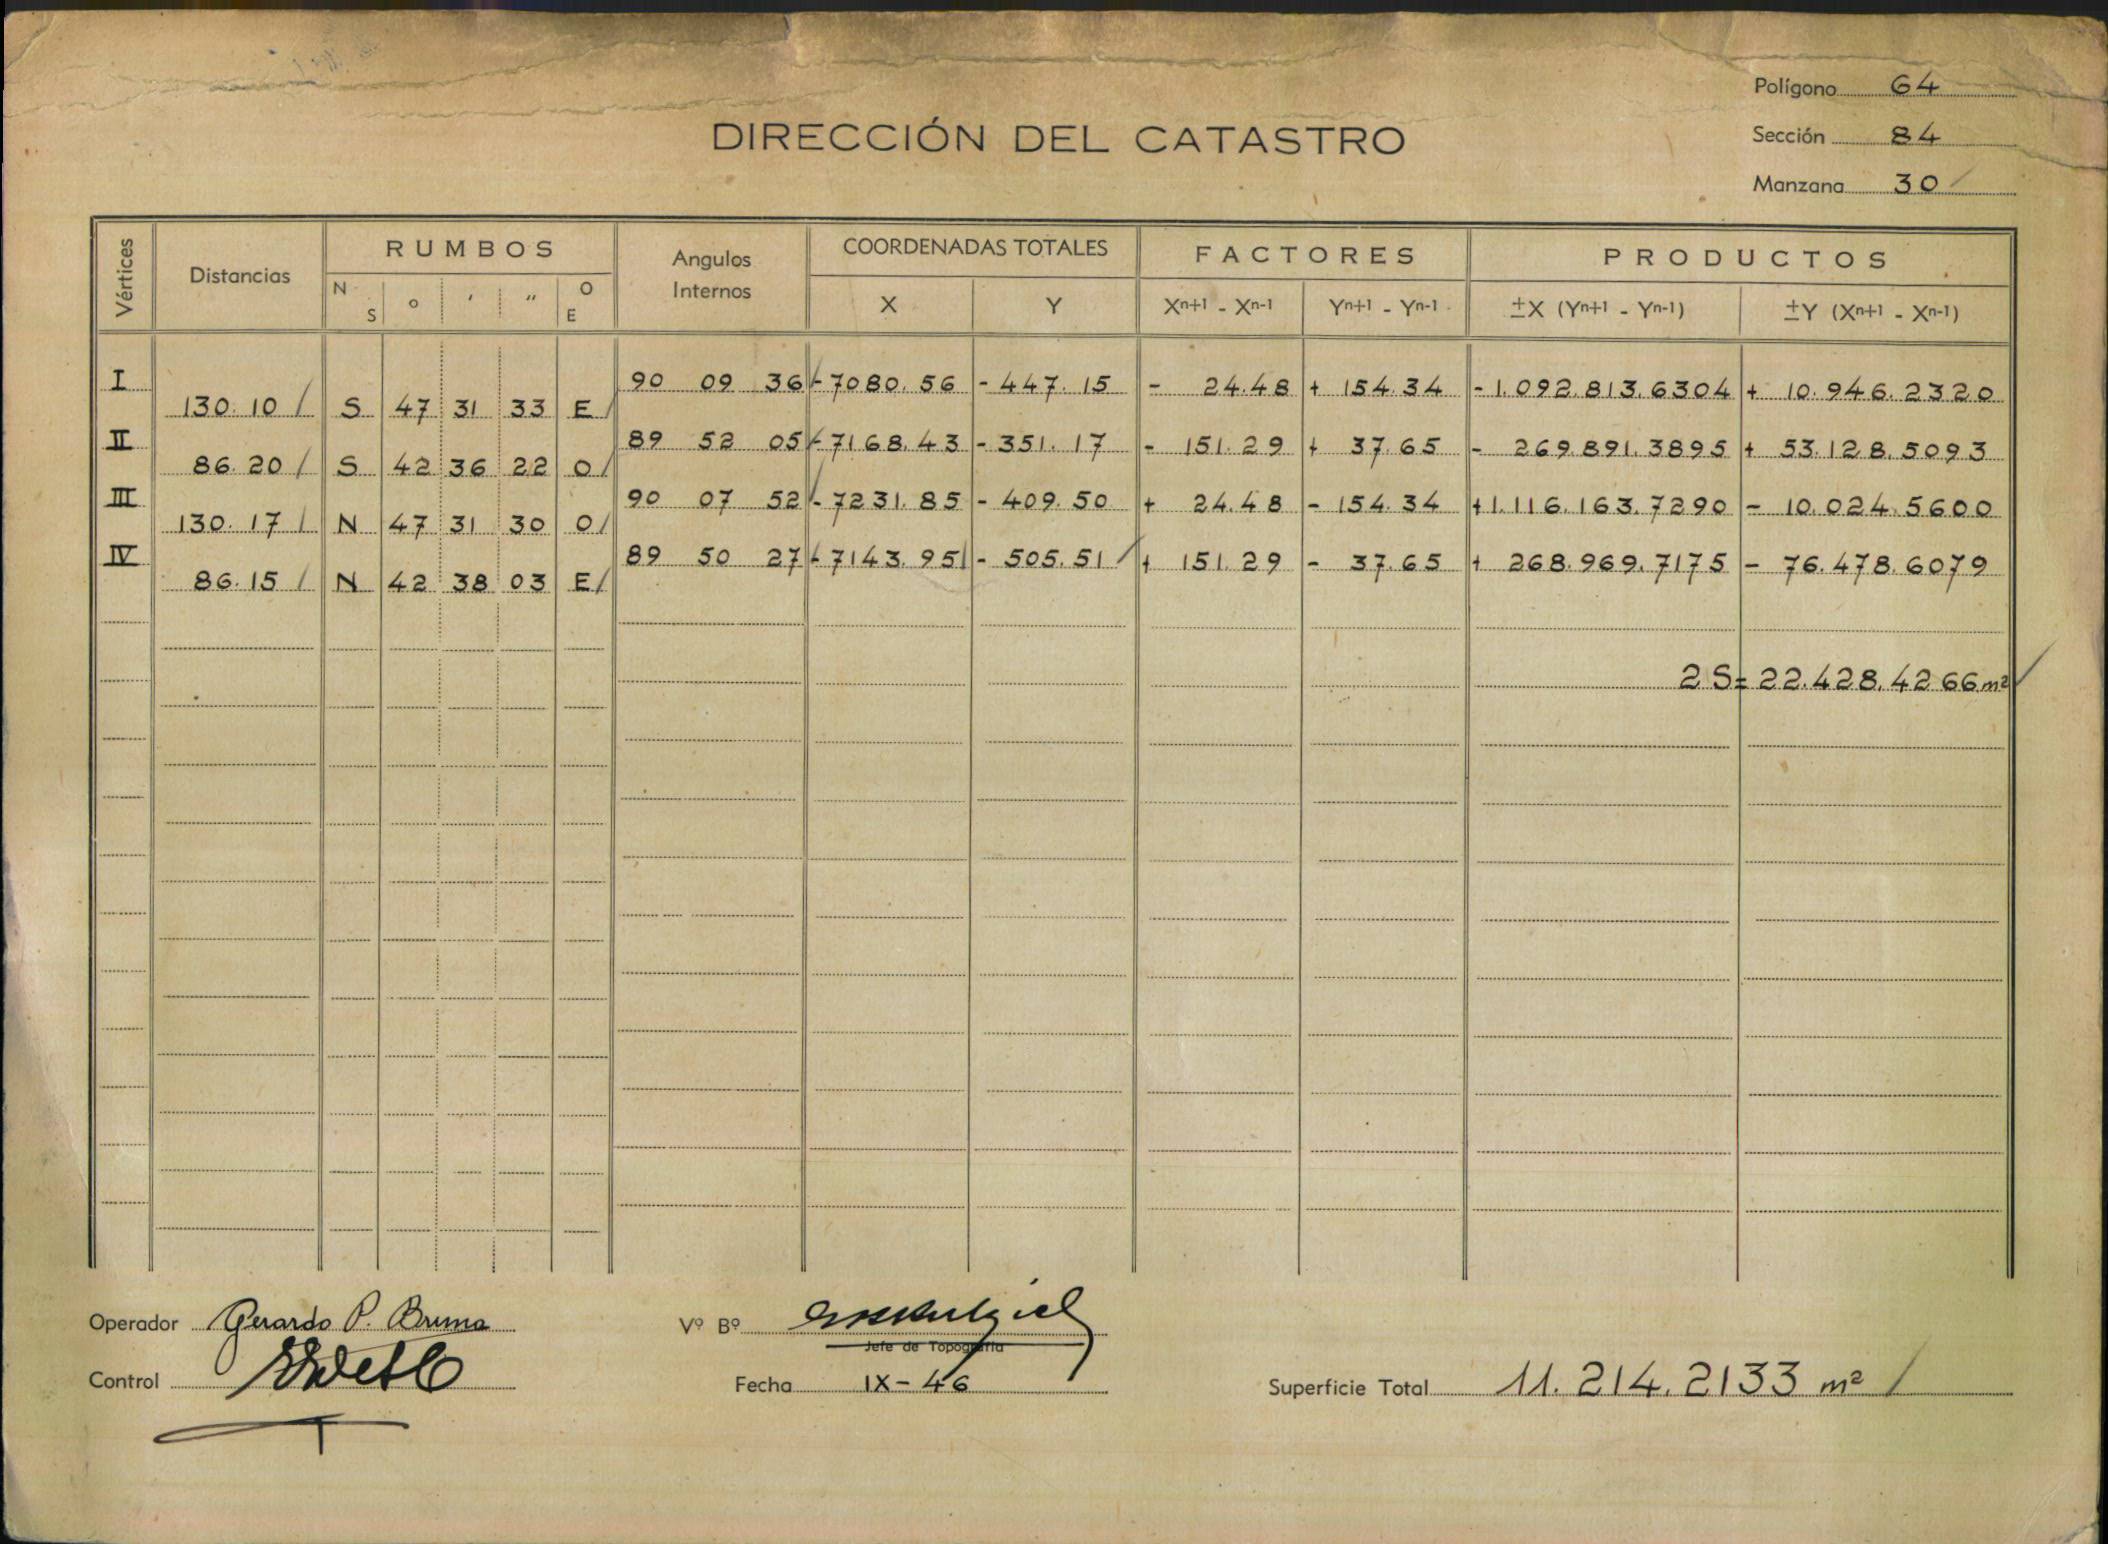 Polígono 64
DIRECCIÓN DEL CATASTRO
Sección 84
Manzana 30
Vértices Distancias RUMBOS Angulos Internos COORDENADAS TOTALES FACTORES PRODUCTOS
N S ° ' " O E X Y Xn+1 - Xn-1 Yn+1 - Yn-1 ±X (Yn+1 - Yn-1) ±Y (Xn+1 - Xn-1)
I 90 09 36 -7080.56 -447.15 - 24.48 + 154.34 -1.092.813.6304 + 10.946.2320
130.10 S 47 31 33 E
II 89 52 05 -7168.43 -351.17 - 151.29 + 37.65 - 269.891.3895 + 53.128.5093
86.20 S 42 36 22 O
III 90 07 52 -7231.85 - 409.50 + 24.48 - 154.34 +1.116.163.7290 - 10.024.5600
130.17 N 47 31 30 O
IV 89 50 27 -7143.95 - 505.51 + 151.29 - 37.65 + 268.969.7175 - 76.478.6079
86.15 N 42 38 03 E
2S= 22.428.4266 m²
Operador Gerardo P. Bruma Vº Bº
Jefe de Topografía
Control Fecha IX-46 Superficie Total 11.214.2133 m²